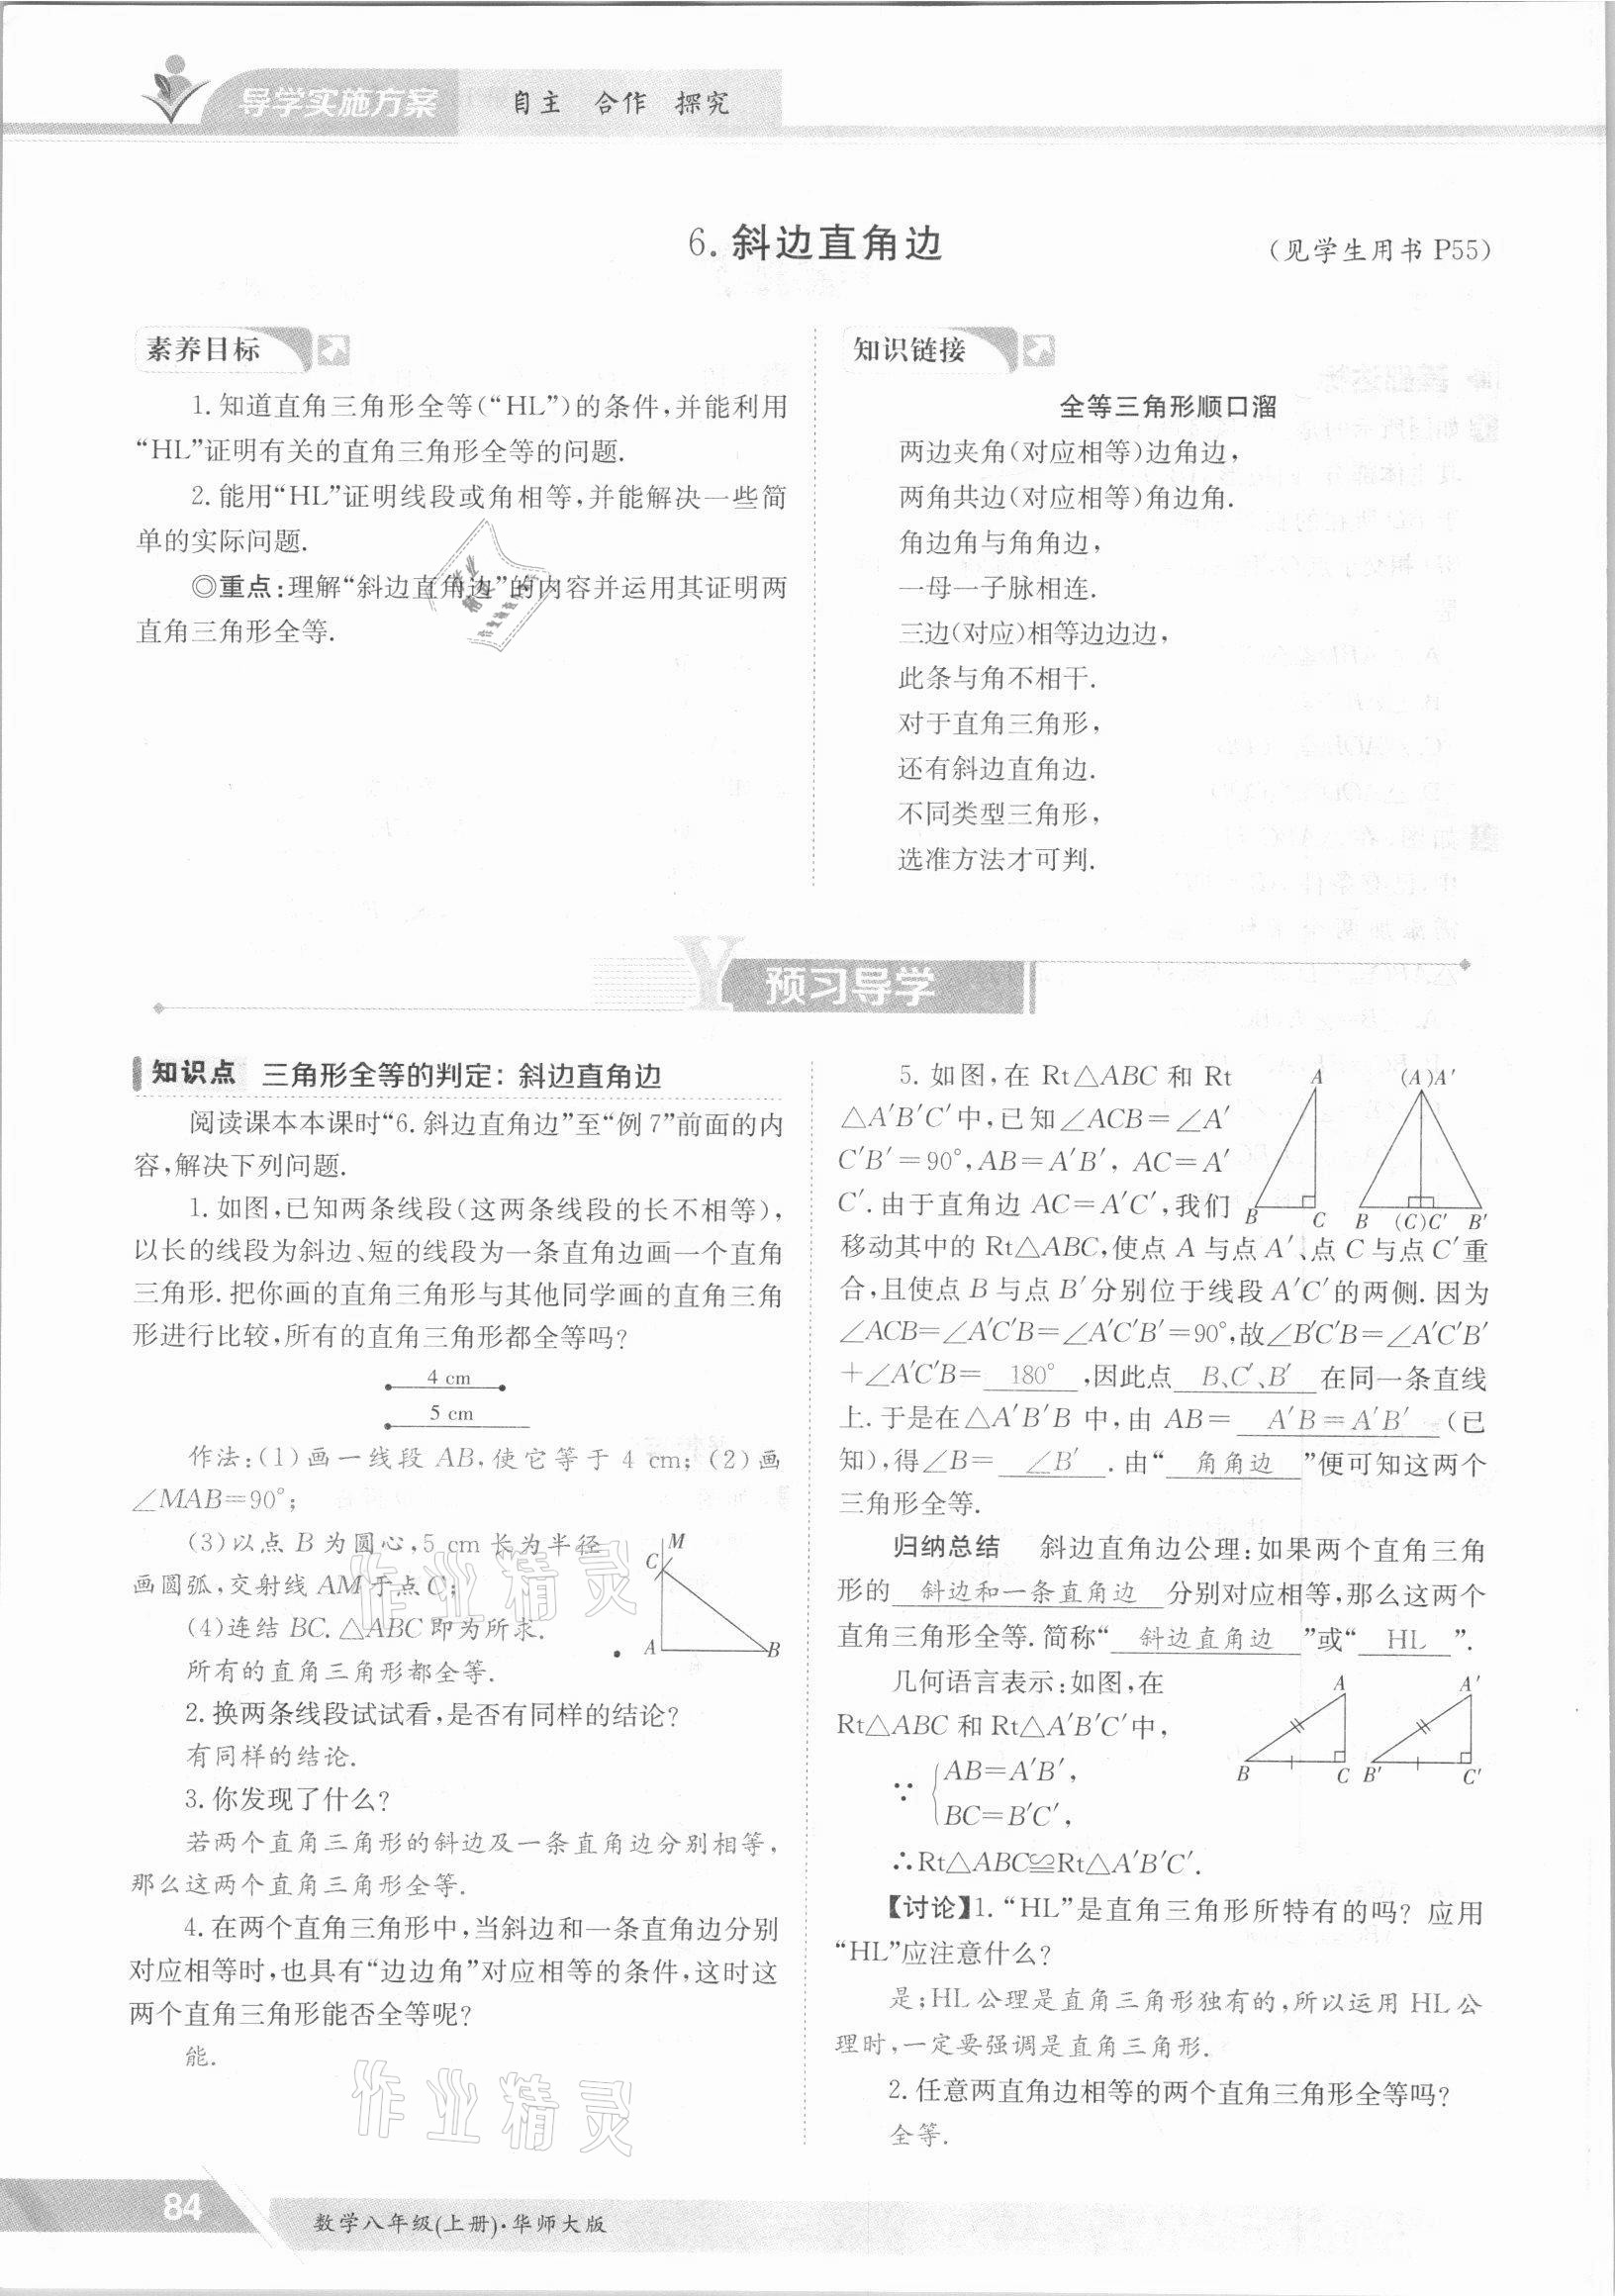 导学实施方案 自主 合作 探究
6. 斜边直角边
(见学生用书 P55)
素养目标
1. 知道直角三角形全等(“HL”)的条件,并能利用
“HL”证明有关的直角三角形全等的问题.
2. 能用“HL”证明线段或角相等,并能解决一些简
单的实际问题.
◎重点:理解“斜边直角边”的内容并运用其证明两
直角三角形全等.
知识链接
全等三角形顺口溜
两边夹角(对应相等)边角边,
两角共边(对应相等)角边角.
角边角与角角边,
一母一子脉相连.
三边(对应)相等边边边,
此条与角不相干.
对于直角三角形,
还有斜边直角边.
不同类型三角形,
选准方法才可判.
预习导学
知识点 三角形全等的判定:斜边直角边
阅读课本本课时“6. 斜边直角边”至“例 7”前面的内
容,解决下列问题.
1. 如图,已知两条线段(这两条线段的长不相等),
以长的线段为斜边、短的线段为一条直角边画一个直角
三角形. 把你画的直角三角形与其他同学画的直角三角
形进行比较,所有的直角三角形都全等吗?
4 cm
5 cm
作法:(1)画一线段 AB,使它等于 4 cm;(2)画
∠MAB=90°;
(3)以点 B 为圆心,5 cm 长为半径
画圆弧,交射线 AM 于点 C;
(4)连结 BC. △ABC 即为所求.
M
C
A
B
所有的直角三角形都全等.
2. 换两条线段试试看,是否有同样的结论?
有同样的结论.
3. 你发现了什么?
若两个直角三角形的斜边及一条直角边分别相等,
那么这两个直角三角形全等.
4. 在两个直角三角形中,当斜边和一条直角边分别
对应相等时,也具有“边边角”对应相等的条件,这时这
两个直角三角形能否全等呢?
能.
5. 如图,在 Rt△ABC 和 Rt
△A′B′C′中,已知∠ACB=∠A′
C′B′=90°,AB=A′B′, AC=A′
C′. 由于直角边 AC=A′C′,我们
A (A)A′
B C B (C)C′ B′
移动其中的 Rt△ABC,使点 A 与点 A′、点 C 与点 C′重
合,且使点 B 与点 B′分别位于线段 A′C′的两侧. 因为
∠ACB=∠A′C′B=∠A′C′B′=90°,故∠B′C′B=∠A′C′B′
+∠A′C′B= 180° ,因此点 B、C′、B′ 在同一条直线
上. 于是在△A′B′B 中,由 AB= A′B=A′B′ (已
知),得∠B= ∠B′ . 由“ 角角边 ”便可知这两个
三角形全等.
归纳总结 斜边直角边公理:如果两个直角三角
形的 斜边和一条直角边 分别对应相等,那么这两个
直角三角形全等. 简称“ 斜边直角边 ”或“ HL ”.
几何语言表示:如图,在
Rt△ABC 和 Rt△A′B′C′中,
∵ {AB=A′B′,
BC=B′C′,
A A′
B C B′ C′
∴Rt△ABC≌Rt△A′B′C′.
【讨论】1. “HL”是直角三角形所特有的吗? 应用
“HL”应注意什么?
是;HL 公理是直角三角形独有的,所以运用 HL 公
理时,一定要强调是直角三角形.
2. 任意两直角边相等的两个直角三角形全等吗?
全等.
作业精灵
作业精灵
84
数学八年级(上册)·华师大版